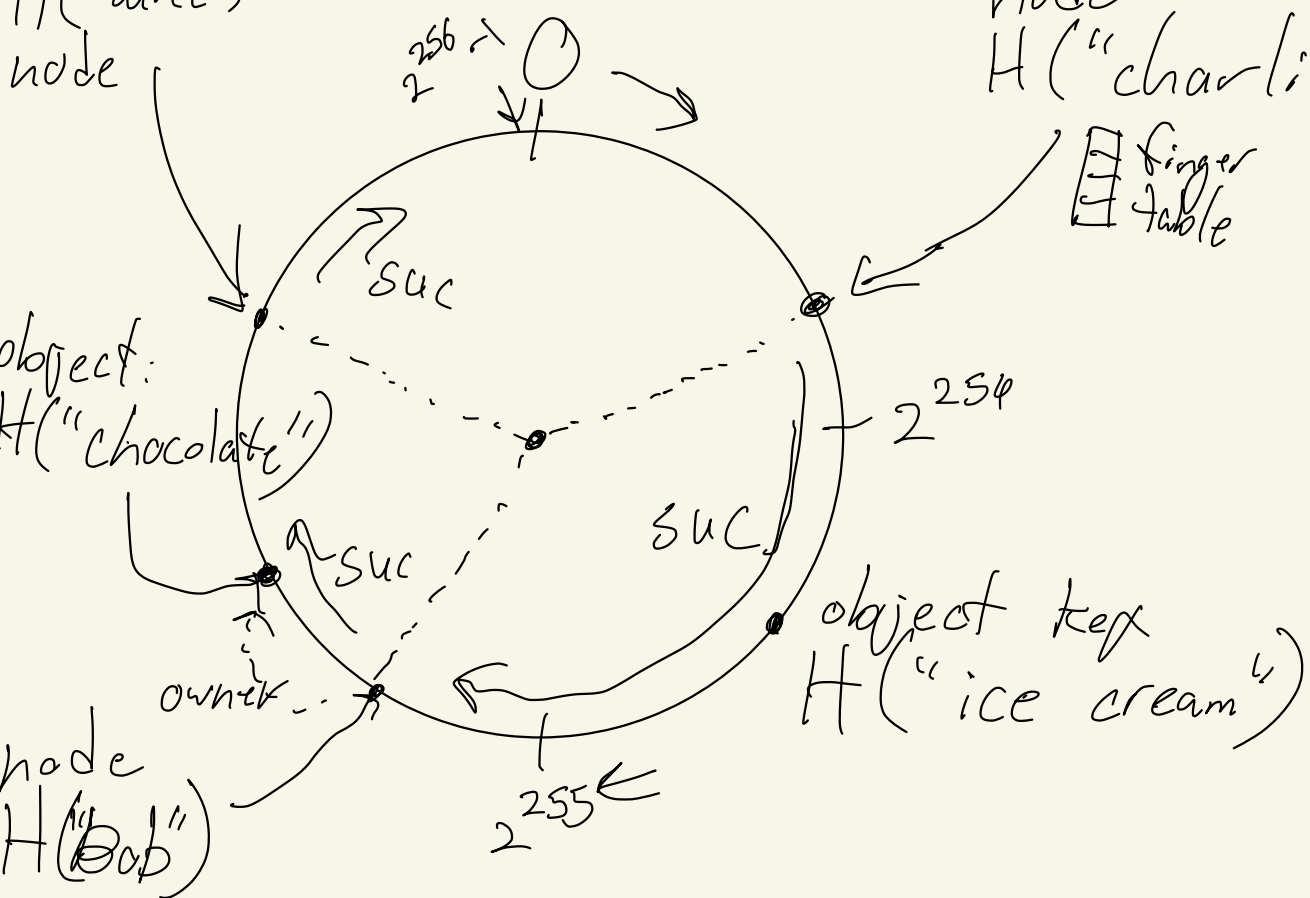 node
2^256-1
0
H("charli
finger
table
suc
object:
H("chocolate")
2^254
suc
suc
object key
H("ice cream")
owner
node
H("Bob")
2^255